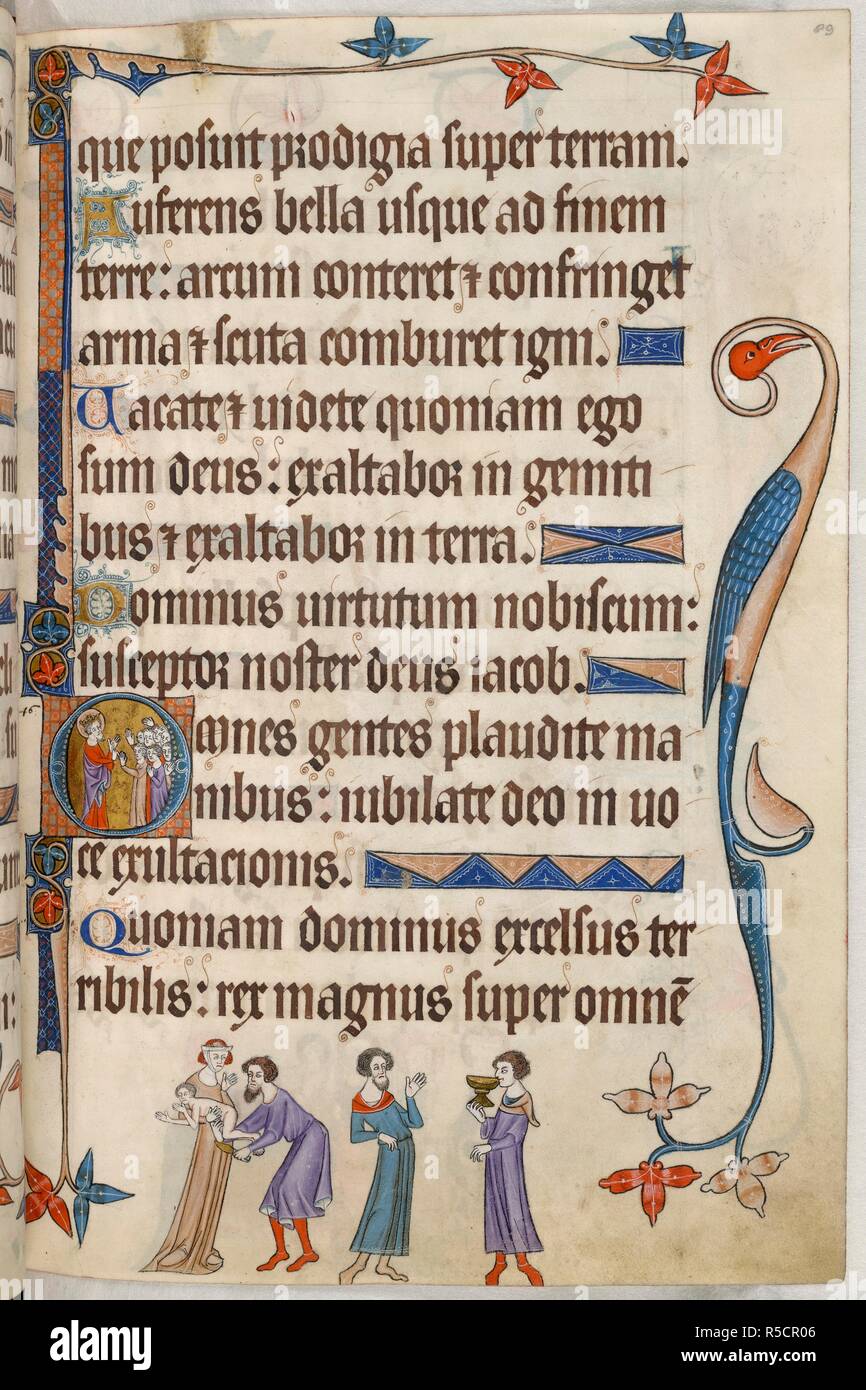 89
que posuit prodigia super terram.
Auferens bella usque ad finem
terre: arcum conteret ⁊ confringet
arma ⁊ scuta comburet igni.
Uacate ⁊ uidete quoniam ego
sum deus: exaltabor in genti
bus ⁊ exaltabor in terra.
Dominus uirtutum nobiscum:
susceptor noster deus iacob.
Omnes gentes plaudite ma
nibus: iubilate deo in uo
ce exultacionis.
Quoniam dominus excelsus ter
ribilis: rex magnus super omnē
alamy
Image ID: R5CR06
www.alamy.com